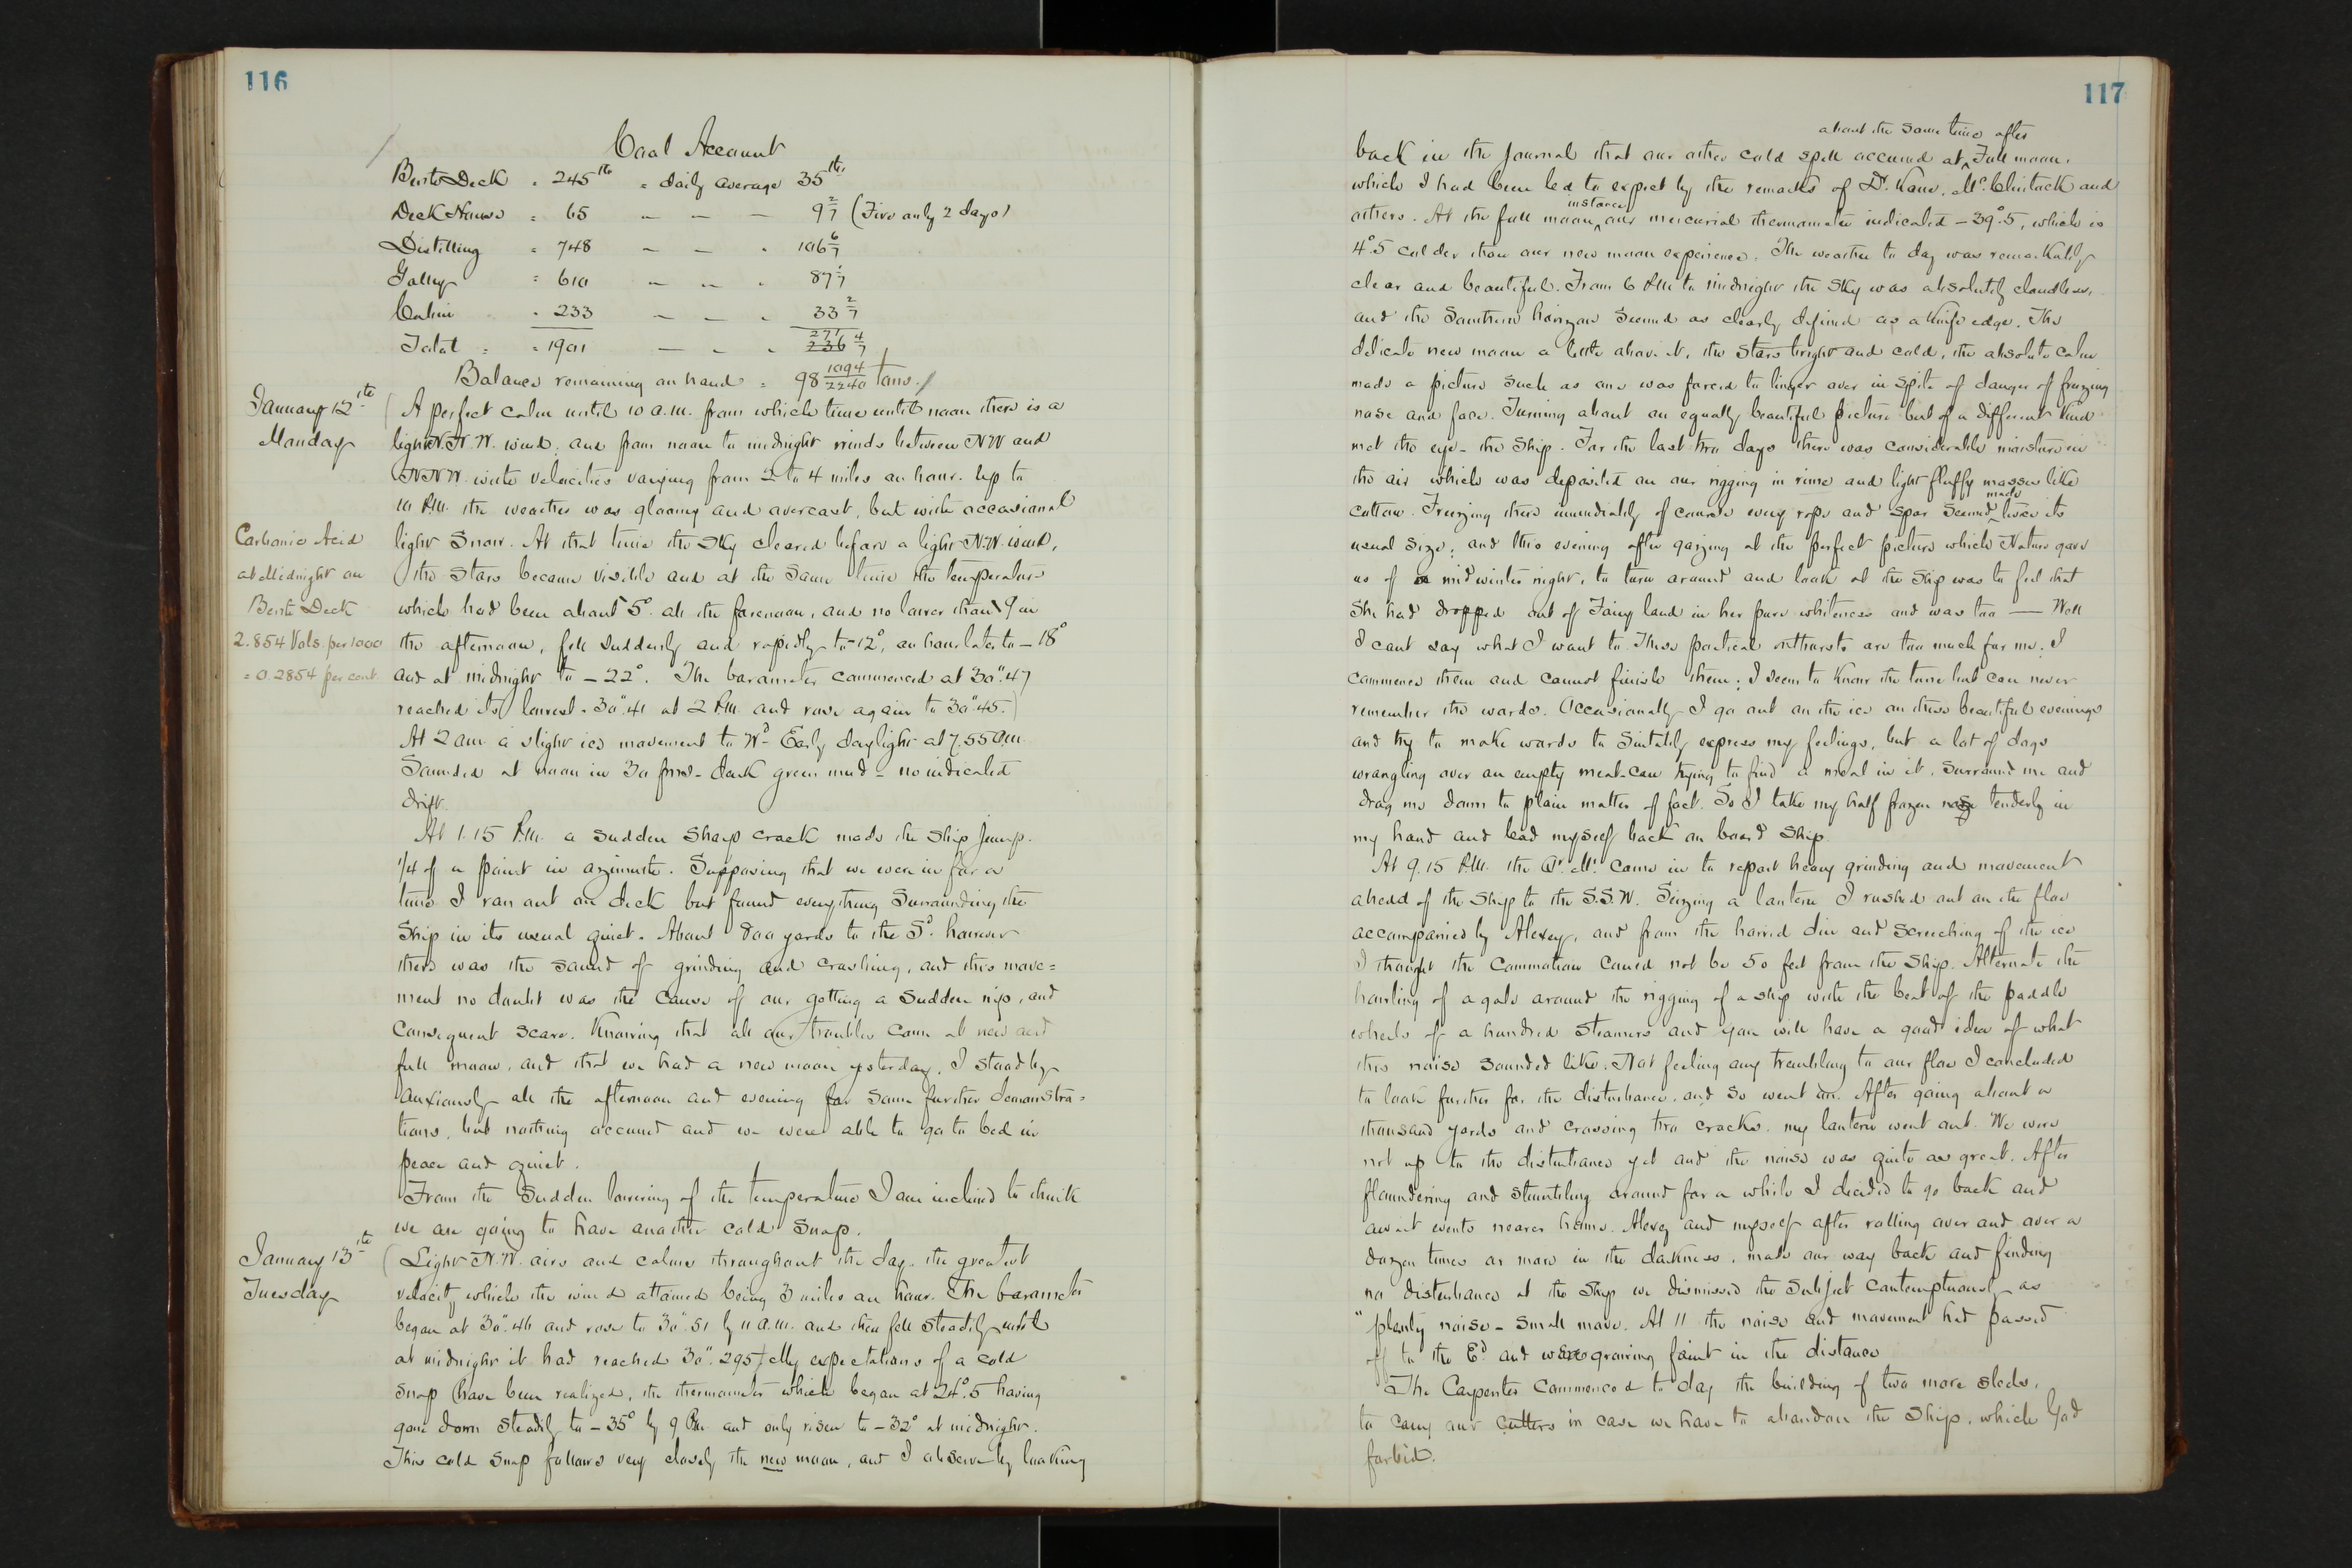 116
Coal Account
Berth Deck = 245 lbs = daily average 35 lbs.
Deck House = 65 — — — 9 2/7 (Fire only 2 days)
Distilling = 748 — — " 106 6/7
Galley = 610 — — " 87 1/7
Cabin = 233 — — " 33 2/7
Total = 1901 — — " 271 4/7
Balance remaining on hand = 98 1094/2240 tons.
January 12th
Monday
(A perfect calm until 10 a.m. from which time until noon there is a
light N.N.W. wind, and from noon to midnight winds between NW and
NNW. with velocities varying from 2 to 4 miles an hour. Up to
10 P.M. the weather was gloomy and overcast, but with occasional
Carbonic Acid
at Midnight on
Berth Deck
2.854 Vols. per 1000
= 0.2854 per cent
light snow. At that time the sky cleared before a light N.W. wind,
the stars became visible and at the same time the temperature
which had been about 5° all the forenoon, and no lower than 9 in
the afternoon, fell suddenly and rapidly to -12°, an hour later to -18°
and at midnight to -22°. The barometer commenced at 30".47
reached its lowest = 30".41 at 2 P.M. and rose again to 30".45.)
At 2 am. a slight ice movement to Wd - Early daylight at 7.55 a.m.
Sounded at noon in 30 fms - dark green mud - no indicated
drift.
At 1.15 P.M. a sudden sharp crack made the ship jump.
1/4 of a point in azimuth. Supposing that we were in for a
time I ran out on deck but found everything surrounding the
Ship in its usual quiet. About 800 yards to the Sd. however
there was the sound of grinding and crashing, and this move=
ment no doubt was the cause of our getting a sudden nip, and
consequent scare. Knowing that all our troubles come at new and
full moon, and that we had a new moon yesterday, I stood by
anxiously all the afternoon and evening for some further demonstra=
tions, but nothing occurred and we were able to go to bed in
peace and quiet.
From the sudden lowering of the temperature I am inclined to think
we are going to have another cold snap.
January 13th
Tuesday
(Light N.W. airs and calms throughout the day. the greatest
velocity which the wind attained being 3 miles an hour. The barometer
began at 30".46 and rose to 30".51 by 11 a.m. and then fell steadily until
at midnight it had reached 30".295) My expectations of a cold
snap have been realized, the thermometer which began at 24°.5 having
gone down steadily to -35° by 9 P.M. and only risen to -32° at midnight.
This cold snap follows very closely the new moon, and I observe by looking
117
about the same time after
back in the journal that our other cold spell occurred at ^ Full moon.
which I had been led to expect by the remarks of Dr. Kane, McClintock and
others. At the full moon ^ instance our mercurial thermometer indicated -39°.5, which is
4°.5 colder than our new moon experience. The weather to day was remarkably
clear and beautiful. From 6 P.M. to midnight the sky was absolutely cloudless,
and the Southern horizon seemed as clearly defined as a knife edge. The
delicate new moon a little above it, the stars bright and cold, the absolute calm
made a picture such as one was forced to linger over in spite of danger of freezing
nose and face. Turning about an equally beautiful picture but of a different kind
met the eye - the Ship. For the last two days there was considerable moisture in
the air which was deposited on our rigging in rime and light fluffy masses like
cotton. Freezing there immediately of course every rope and spar seemed ^ made twice its
usual size; and this evening after gazing at the perfect picture which Nature gave
us of a midwinter night, to turn around and look at the ship was to feel that
She had dropped out of Fairy land in her pure whiteness and was too — Well
I cant say what I want to. These poetical outbursts are too much for me. I
commence them and cannot finish them; I seem to know the tune but can never
remember the words. Occasionally I go out on the ice on these beautiful evenings
and try to make words to suitably express my feelings, but a lot of dogs
wrangling over an empty meat-can trying to find a meal in it, surround me and
drag me down to plain matter of fact. So I take my half frozen nose tenderly in
my hand and lead myself back on board ship.
At 9.15 P.M. the Qr. Mr. came in to report heavy grinding and movement
ahead of the ship to the S.S.W. Seizing a lantern I rushed out on the floe
accompanied by Alexey, and from the horrid din and screeching of the ice
I thought the commotion could not be 50 feet from the ship. Alternate the
howling of a gale around the rigging of a ship with the beat of the paddle
wheels of a hundred steamers and you will have a good idea of what
this noise sounded like. Not feeling any trembling to our floe I concluded
to look further for the disturbance, and so went on. After going about a
thousand yards and crossing two cracks, my lantern went out. We were
not up to the disturbance yet and the noise was quite as great. After
floundering and stumbling around for a while I decided to go back and
await events nearer home. Alexey and myself after rolling over and over a
dozen times or more in the darkness, made our way back and finding
no disturbance at the ship we dismissed the subject contemptuously as
"plenty noise - small move. At 11 the noise and movement had passed
off to the Ed. and was growing faint in the distance
The Carpenter commenced to day the building of two more sleds,
to carry our cutters in case we have to abandon the ship, which God
forbid.